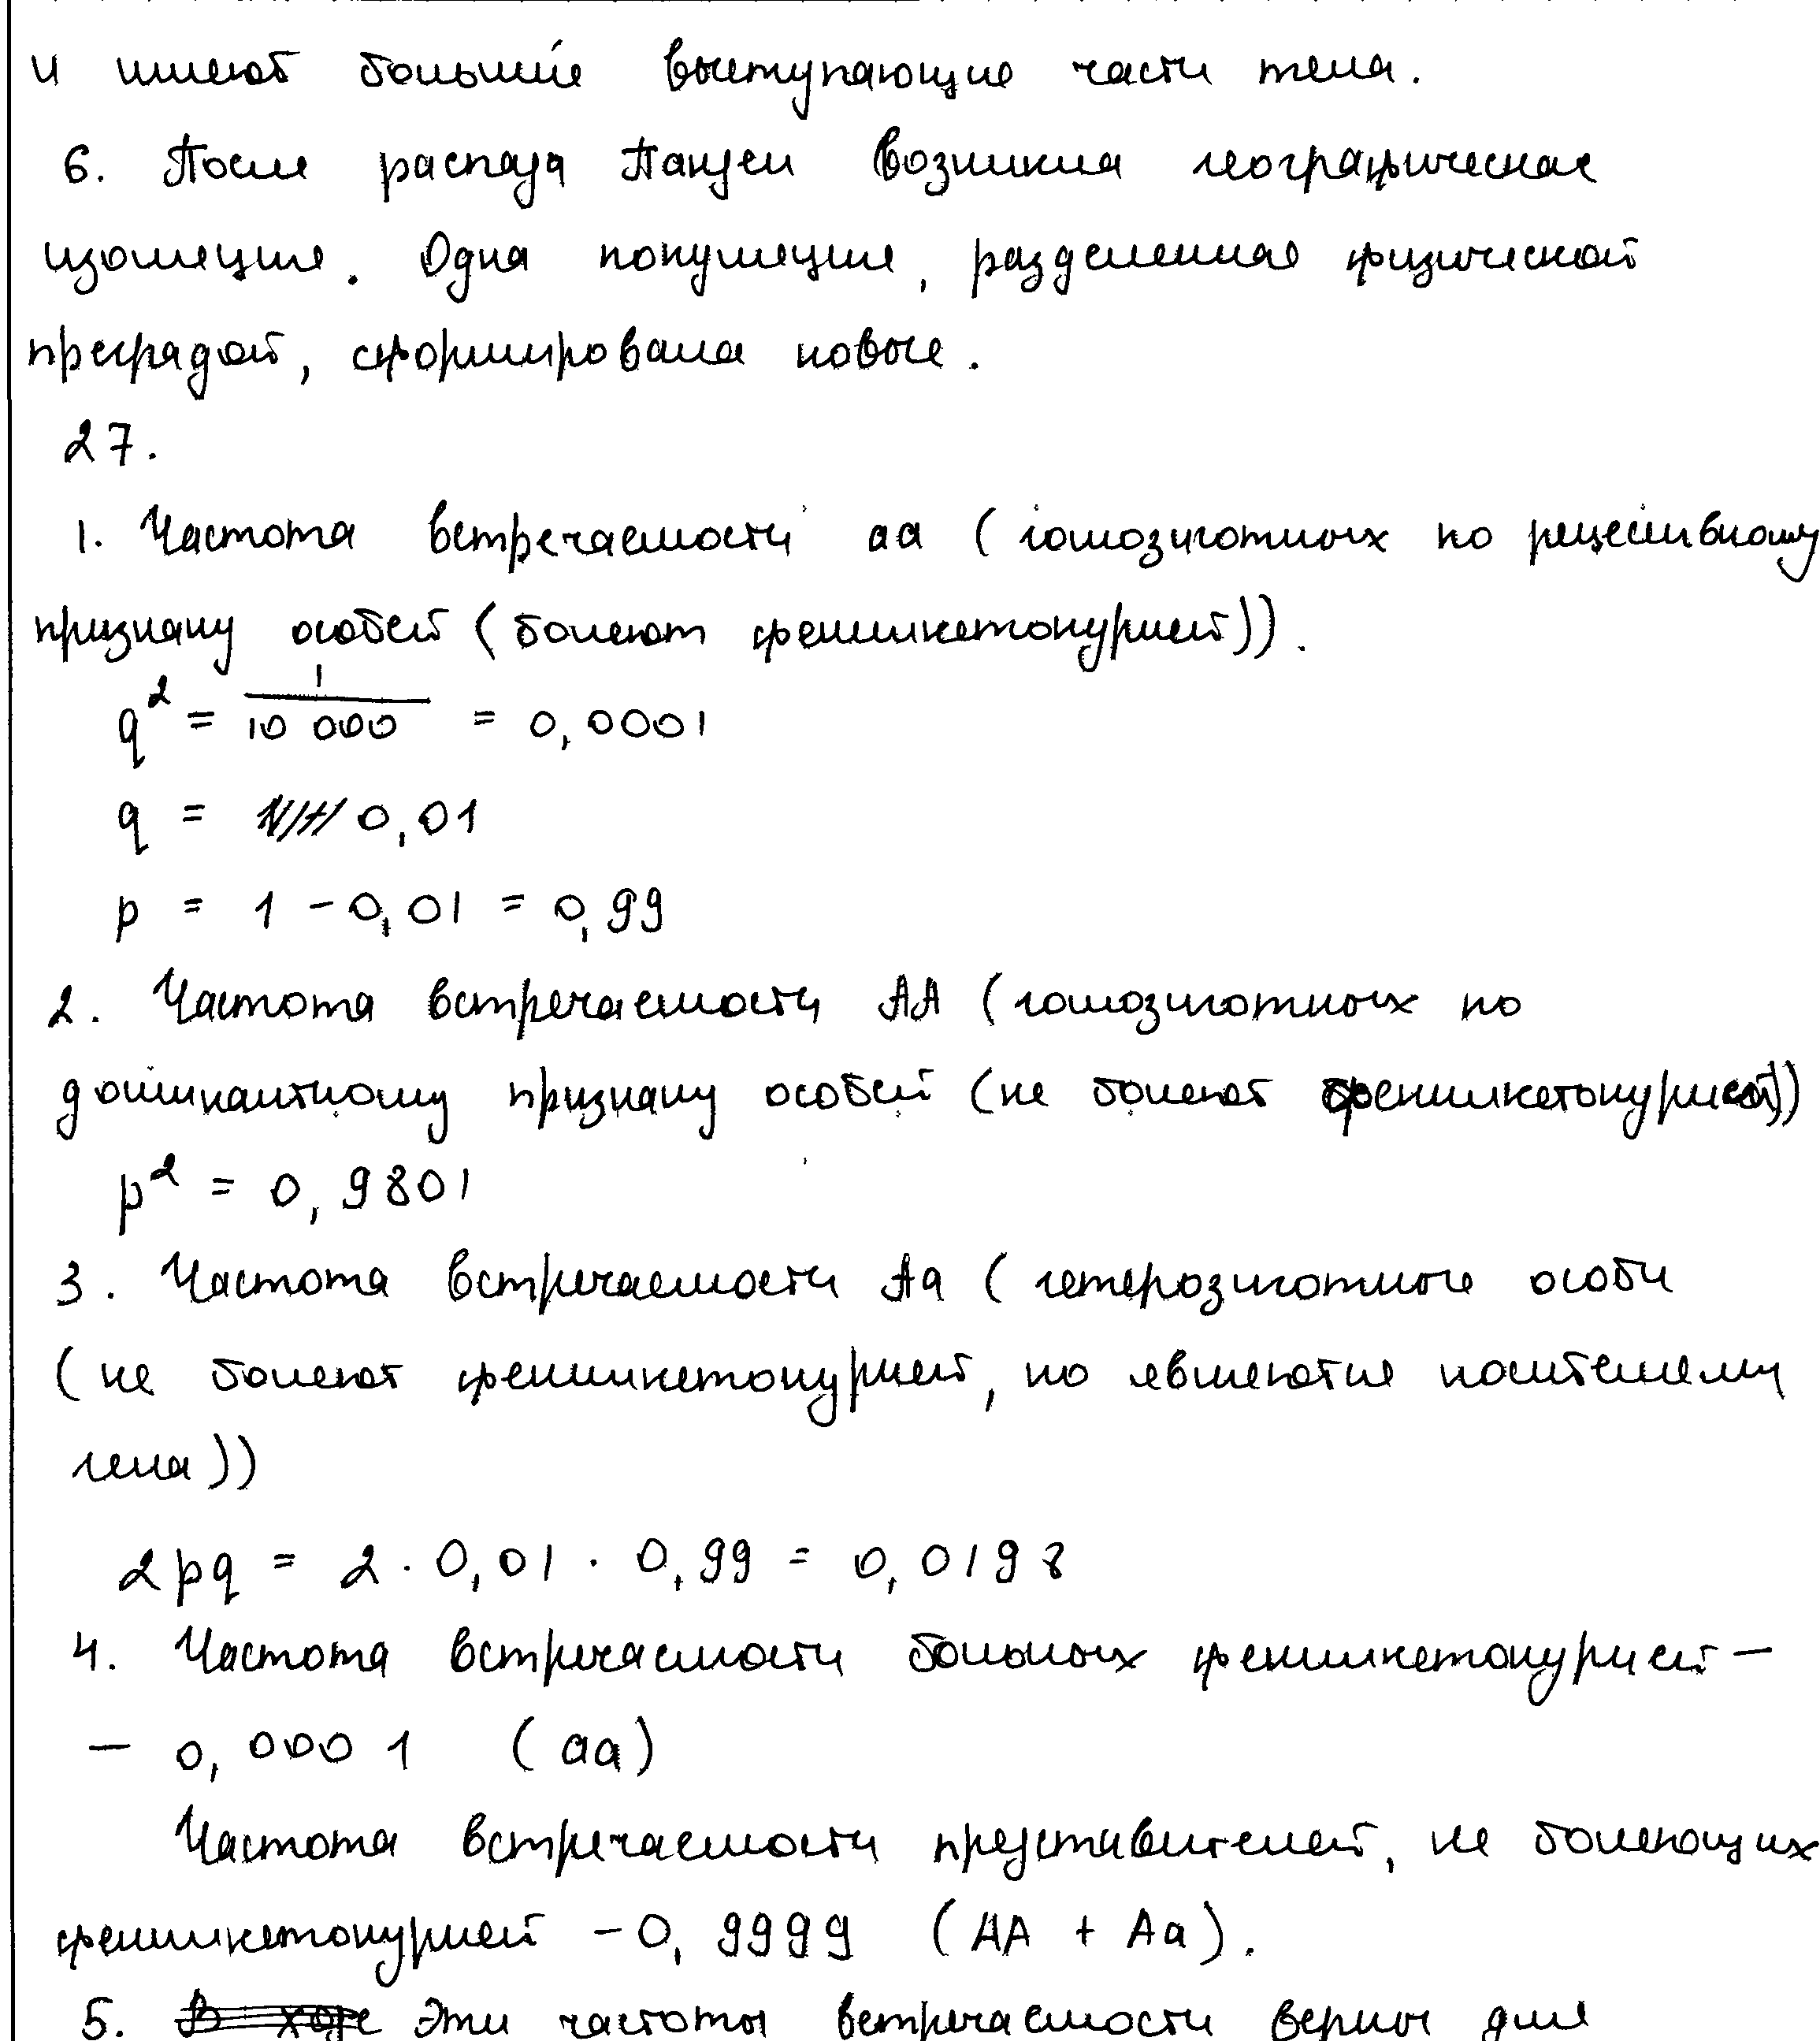 и имеют большие выступающие части тела.
6. После распада Пангеи возникла географическая
изоляция. Одна популяция, разделенная физической
преградой, сформировала новые.
27.
1. Частота встречаемости аа (гомозиготных по рецессивному
признаку особей (болеют фенилкетонурией)).
q² = 1/10 000 = 0,0001
q = 0,01
p = 1 - 0,01 = 0,99
2. Частота встречаемости АА (гомозиготных по
доминантному признаку особей (не болеют фенилкетонурией))
p² = 0,9801
3. Частота встречаемости Аа (гетерозиготные особи
(не болеют фенилкетонурией, но являются носителями
гена))
2pq = 2 · 0,01 · 0,99 = 0,0198
4. Частота встречаемости больных фенилкетонурией –
– 0,0001 (аа)
Частота встречаемости представителей, не болеющих
фенилкетонурией – 0,9999 (АА + Аа).
5. В ходе Эти частоты встречаемости верны для